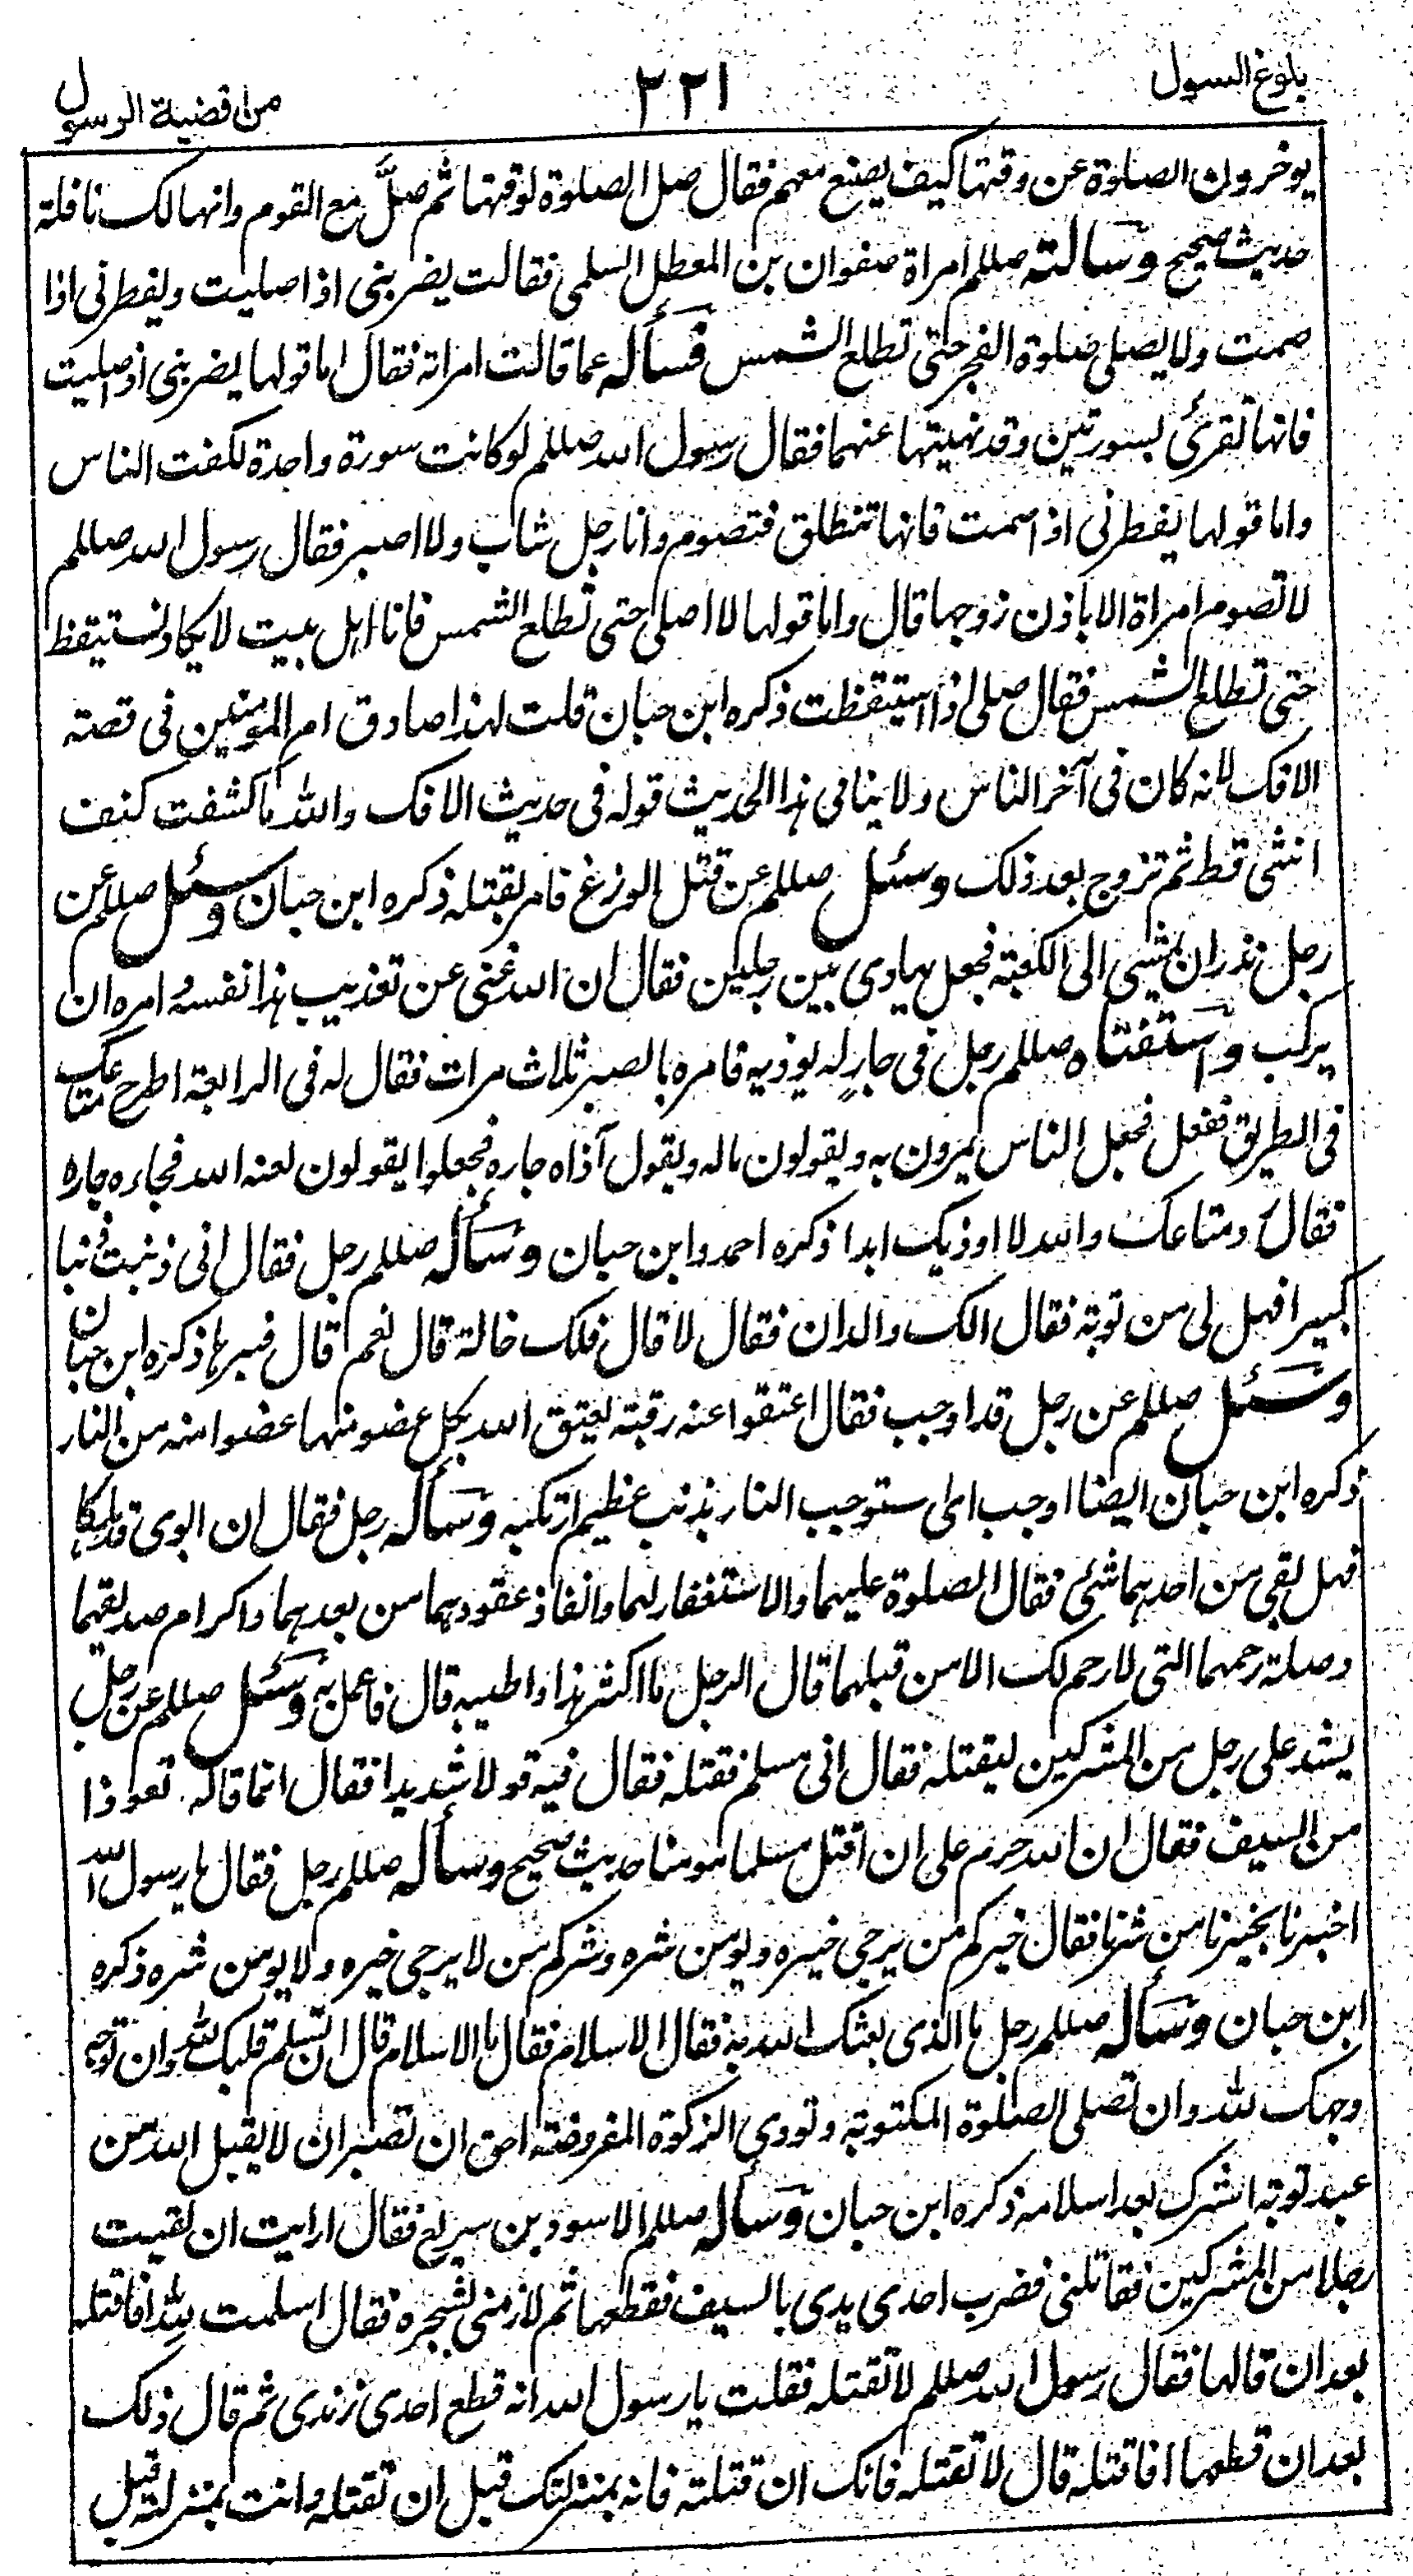 بلوغ السول
٢٢١
من اقضية الرسول
يوخرون الصلوة عن وقتها كيف يصنع معهم فقال صل الصلوة لوقتها ثم صلَّ مع القوم وانها لك نافلة
حديث صحيح وسألته صللم امراة صفوان بن المعطل السلمى فقالت يضربنى اذا صليت ويفطرنى اذا
صمت ولا يصلى صلوة الفجر حتى تطلع الشمس فسأله عما قالت امراته فقال اما قولها يضربنى اذا صليت
فانها تقرئ بسورتين وقد نهيتها عنهما فقال رسول الله صللم لو كانت سورة واحدة لكفت الناس
واما قولها يفطرنى اذا صمت فانها تنطلق فتصوم وانا رجل شاب ولا اصبر فقال رسول الله صللم
لا تصوم امراة الا باذن زوجها قال واما قولها لا اصلى حتى تطلع الشمس فانا اهل بيت لا يكاد نستيقظ
حتى تطلع الشمس فقال صلى اذا استيقظت ذكره ابن حبان قلت لهذا صادق ام المومنين فى قصته
الافك لانه كان فى آخر الناس ولا ينافى هذا الحديث قوله فى حديث الافك والله ما كشفت كنف
انثى قط ثم تزوج بعد ذلك وسئل صللم عن قتل الوزغ فامر بقتله ذكره ابن حبان وسئل صللم عن
رجل نذر ان يمشى الى الكعبة فجعل يهادى بين رجلين فقال ان الله غنى عن تعذيب هذا نفسه وامره ان
يركب واستفتاه صللم رجل فى جارٍ له يوذيه فامره بالصبر ثلاث مرات فقال له فى الرابعة اطرح متاعك
فى الطريق ففعل فجعل الناس يمرون به ويقولون ماله ويقول آذاه جاره فجعلوا يقولون لعنه الله فجاءه جاره
فقال رد متاعك والله لا اوذيك ابدا ذكره احمد وابن حبان وسأله صللم رجل فقال انى ذنبت ذنبا
كبيرا فهل لى من توبة فقال الك والدان فقال لا قال فلك خالة قال نعم قال فبرها ذكره ابن حبان
وسئل صللم عن رجل قد اوجب فقال اعتقوا عنه رقبة يعتق الله بكل عضو منها عضوا منه من النار
ذكره ابن حبان ايضا اوجب اى استوجب النار بذنب عظيم ارتكبه وسأله رجل فقال ان ابوى قد هلكا
فهل بقى من احدهما شئ فقال الصلوة عليهما والاستغفار لهما وانفاذ عقودهما من بعدهما واكرام صديقهما
وصلة رحمهما التى لا رحم لك الا من قبلهما قال الرجل ما اكثر هذا واطيبه قال فاعمل به وسئل صللم عن رجل
يشد على رجل من المشركين ليقتله فقال انى مسلم فقتله فقال فيه قولا شديدا فقال انما قاله تعوذا
من السيف فقال ان الله حرم على ان اقتل مسلما مومنا حديث صحيح وسأله صللم رجل فقال يا رسول الله
اخبرنا بخيرنا من شرنا فقال خيركم من يرجى خيره ويومن شره وشركم من لا يرجى خيره ولا يومن شره ذكره
ابن حبان وسأله صللم رجل ما الذى بعثك الله به فقال الاسلام فقال ما الاسلام قال ان تسلم قلبك لله وان توجه
وجهك لله وان تصلى الصلوة المكتوبة وتودى الزكوة المفروضة ان لا يقبل الله من
عبد توبة اشرك بعد اسلامه ذكره ابن حبان وسأله صللم الاسود بن سريع فقال ارايت ان لقيت
رجلا من المشركين فقاتلنى فضرب احدى يدى بالسيف فقطعها ثم لاز منى بشجرة فقال اسلمت لله افاقتله
بعد ان قالها فقال رسول الله صللم لا تقتله فقلت يا رسول الله انه قطع احدى زندى ثم قال ذلك
بعد ان قطعها افاقتله قال لا تقتله فانك ان قتلته فانه بمنزلتك قبل ان تقتله وانت بمنزلته قبل